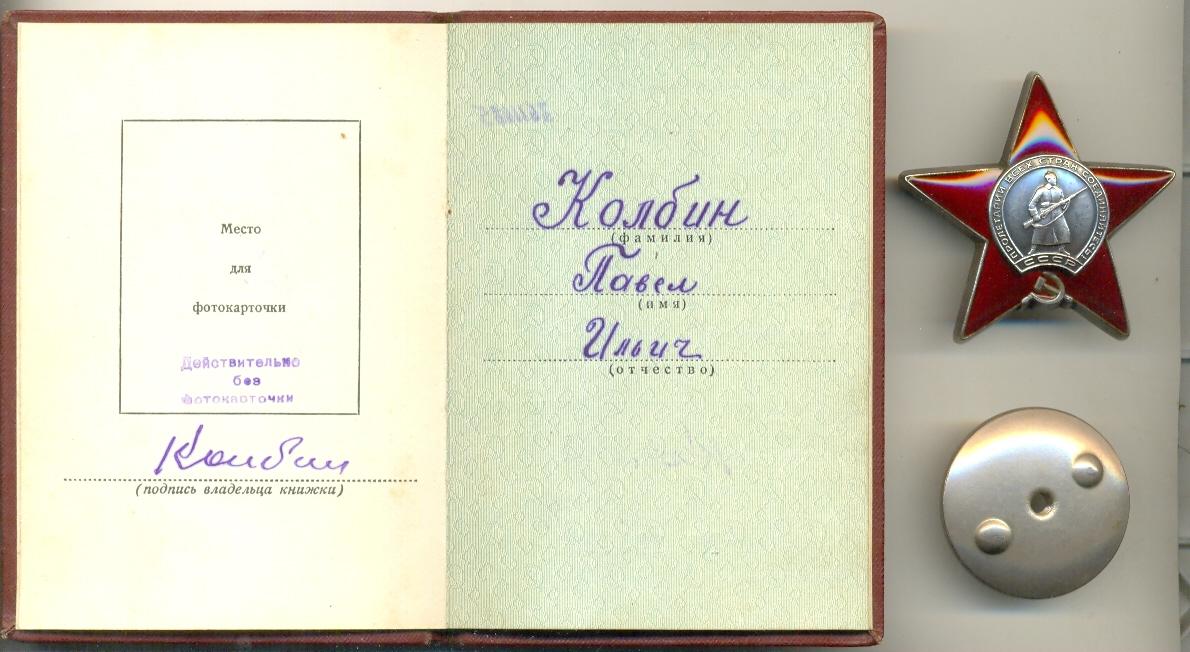 Место
для
фотокарточки
Действительно
без
фотокарточки
Колбин
(подпись владельца книжки)
Колбин
(фамилия)
Павел
(имя)
Ильич
(отчество)
ПРОЛЕТАРИИ ВСЕХ СТРАН СОЕДИНЯЙТЕСЬ!
СССР